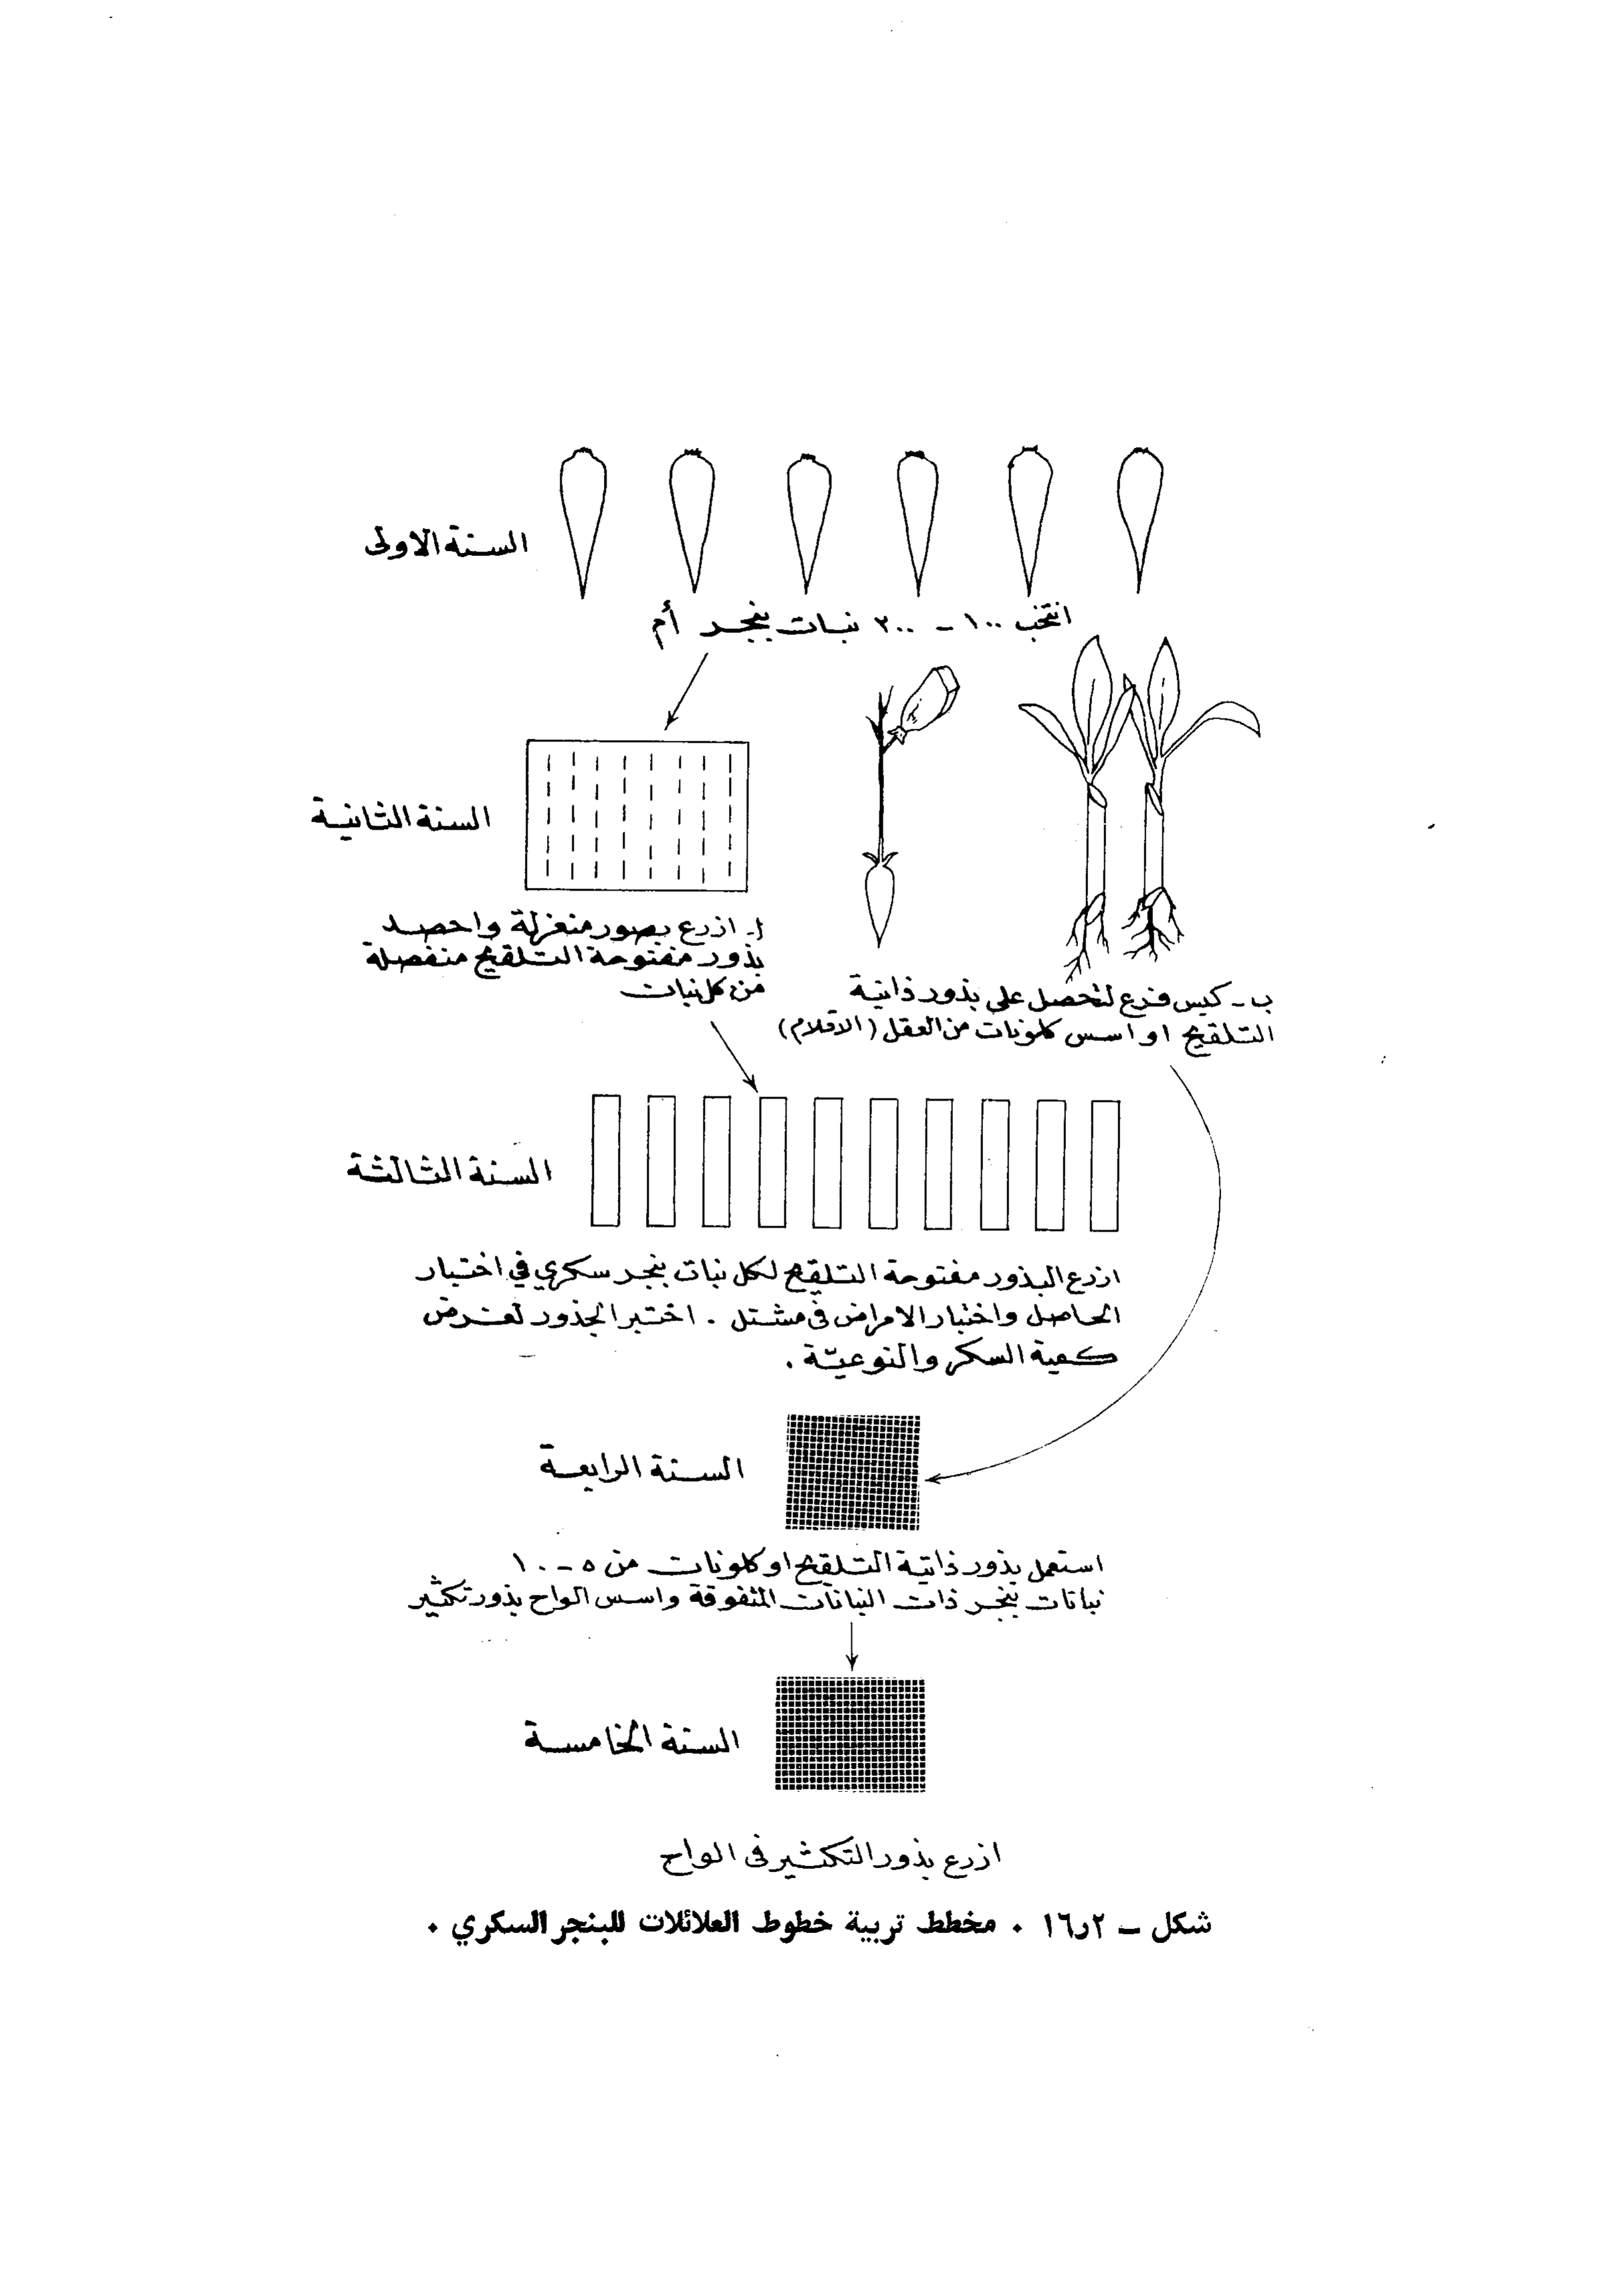 السنة الاولى
انتخب ١٠٠ - ٢٠٠ نبات بنجر أم
السنة الثانية
أ - ازرع بصور منعزلة واحصد
بذور مفتوحة التلقيح منفصلة
من كل نبات
ب - كيس فرع لتحصل على بذور ذاتية
التلقيح او اسس كلونات من العقل (الاقلام)
السنة الثالثة
ازرع البذور مفتوحة التلقيح لكل نبات بنجر سكري في اختبار
الحاصل واختبار الامراض في مشتل . اختبر الجذور لغرض
كمية السكر والنوعيّة .
السنة الرابعة
استعمل بذور ذاتية التلقيح او كلونات من ٥ - ١٠
نباتات بنجر ذات النباتات المتفوقة واسس الواح بذور تكثير
السنة الخامسة
ازرع بذور التكثير في الواح
شكل - ١٦٫٢ . مخطط تربية خطوط العلائلات للبنجر السكري .